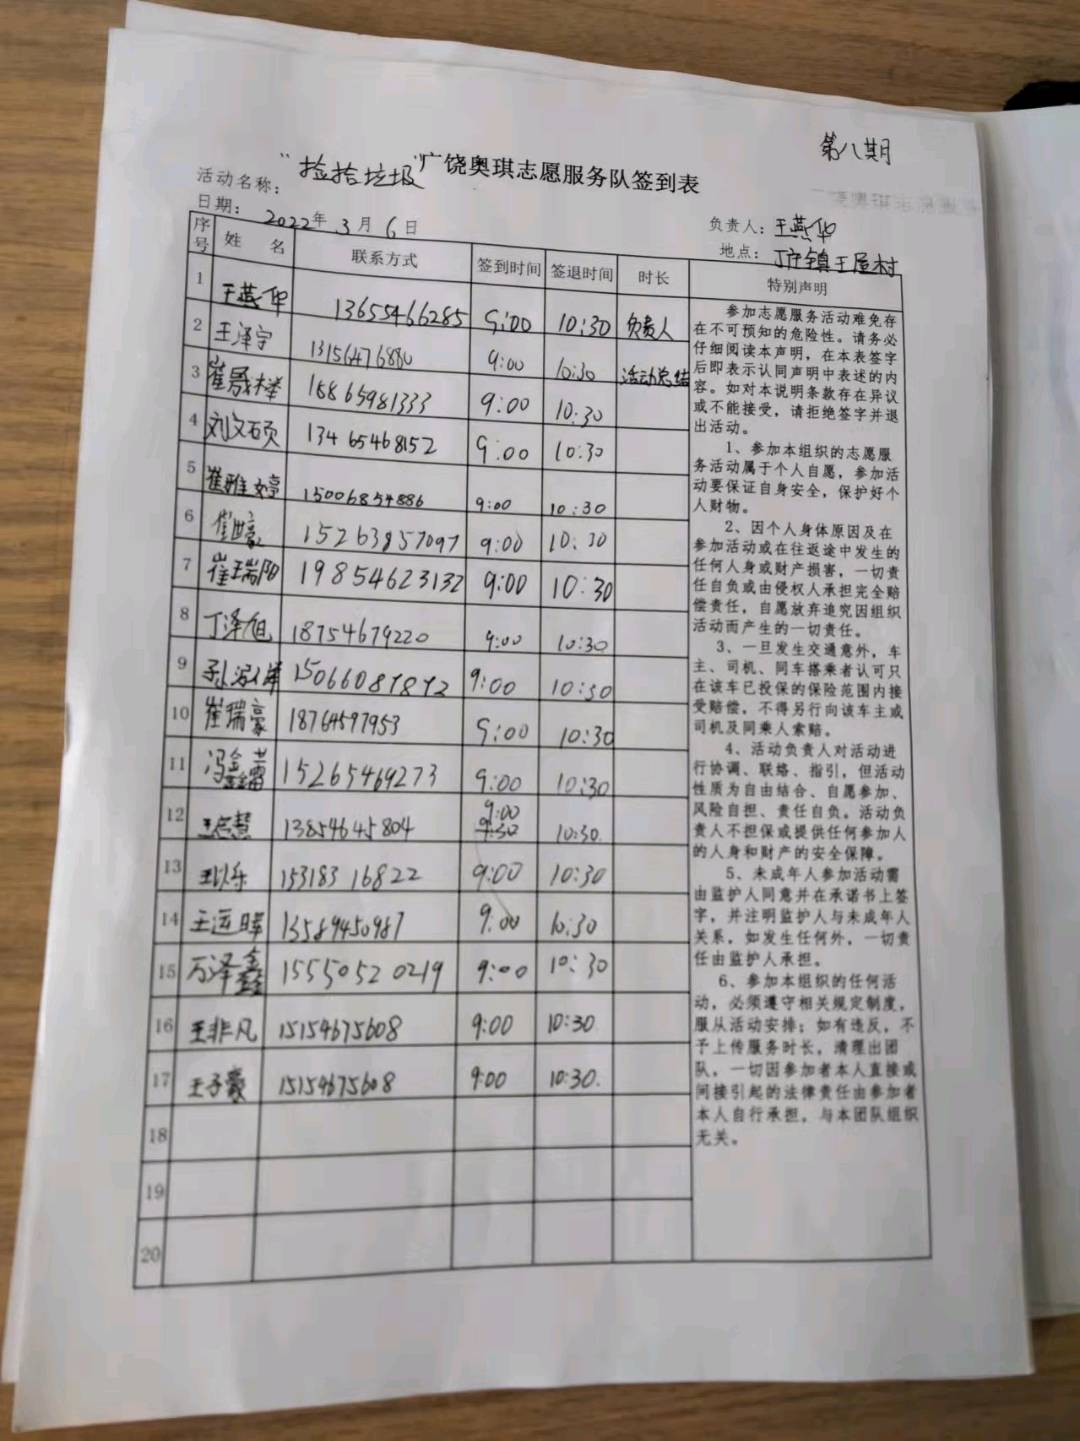 第八期
广饶奥琪志愿服务队签到表
活动名称："捡拾垃圾"
日期：2022年3月6日
负责人：王燕华
地点：丁庄镇王屋村
序号 姓名 联系方式 签到时间 签退时间 时长 特别声明
1 王燕华 13655466285 9:00 10:30 负责人
2 王泽宇 13156476880 9:00 10:30 活动总结
3 崔晟梣 15865981333 9:00 10:30
4 刘文硕 13465468152 9:00 10:30
5 崔雅婷 15006854886 9:00 10:30
6 崔世豪 15263857097 9:00 10:30
7 崔瑞阳 19854623132 9:00 10:30
8 丁泽旭 18754679220 9:00 10:30
9 孙泓洋 15066087872 9:00 10:30
10 崔瑞豪 18764597953 9:00 10:30
11 冯鑫蕾 15265469273 9:00 10:30
12 13854645804 9:00 9:30 10:30
13 15318316822 9:00 10:30
14 王运晖 13589450987 9:00 10:30
15 万泽鑫 15550520219 9:00 10:30
16 王非凡 15154675608 9:00 10:30
17 王子豪 15154675608 9:00 10:30
18
19
20
参加志愿服务活动难免存
在不可预知的危险性。请务必
仔细阅读本声明，在本表签字
后即表示认同声明中表述的内
容。如对本说明条款存在异议
或不能接受，请拒绝签字并退
出活动。
1、参加本组织的志愿服
务活动属于个人自愿，参加活
动要保证自身安全，保护好个
人财物。
2、因个人身体原因及在
参加活动或在往返途中发生的
任何人身或财产损害，一切责
任自负或由侵权人承担完全赔
偿责任，自愿放弃追究因组织
活动而产生的一切责任。
3、一旦发生交通意外，车
主、司机、同车搭乘者认可只
在该车已投保的保险范围内接
受赔偿，不得另行向该车主或
司机及同乘人索赔。
4、活动负责人对活动进
行协调、联络、指引，但活动
性质为自由结合、自愿参加、
风险自担、责任自负。活动负
责人不担保或提供任何参加人
的人身和财产的安全保障。
5、未成年人参加活动需
由监护人同意并在承诺书上签
字，并注明监护人与未成年人
关系，如发生任何外，一切责
任由监护人承担。
6、参加本组织的任何活
动，必须遵守相关规定制度，
服从活动安排；如有违反，不
予上传服务时长，清理出团
队，一切因参加者本人直接或
间接引起的法律责任由参加者
本人自行承担，与本团队组织
无关。